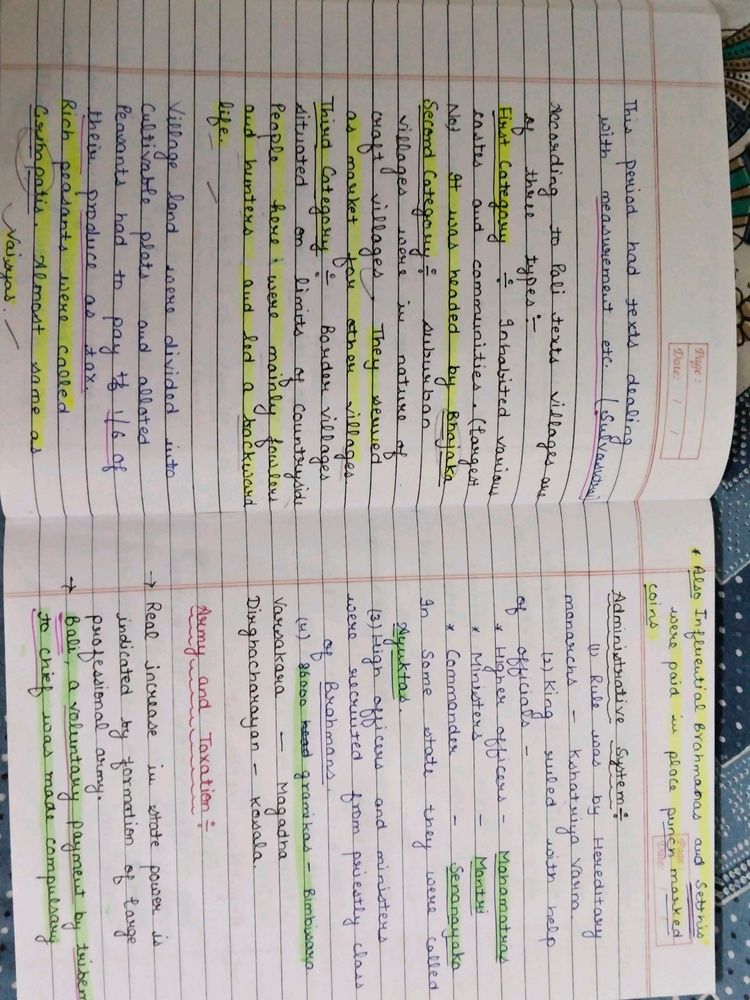 Page:
Date: / /
This period had texts dealing
with measurement etc (Sulvasutra)
According to Pali texts villages are
of three types:-
First Category :- Inhabited various
castes and communities. (Largest
No) It was headed by Bhojaka
Second Category :- suburban
villages were in nature of
craft villages. They served
as market for other villages
Third Category :- Border villages
situated on limits of countryside
People here were mainly fowlers
and hunters and led a backward
life.
Village land were divided into
Cultivable plots and alloted
Peasants had to pay 1/6 of
their produce as tax.
Rich peasants were called
Grihapatis. Almost same as
Vaisyas.
Page:
Date:
* Also Influential Brahmanas and Setthis
were paid in place punch marked
coins
Administrative System :-
(1) Rule was by Hereditary
monarchs - Kshatriya Varna.
(2) King ruled with help
of officials -
* Higher officers - Mahamatras
* Ministers - Mantri
* Commander - Senanayaka
In Some state they were called
Ayuktas.
(3) High officers and ministers
were recruited from priestly class
of Brahmans.
(4) 86000 gramikas - Bimbisara
Varsakara - Magadha
Dirghacharayan - Kosala.
Army and Taxation :-
→ Real increase in state power is
indicated by formation of large
professional army.
→ Bali, a voluntary payment by tribem
to chief was made compulsary